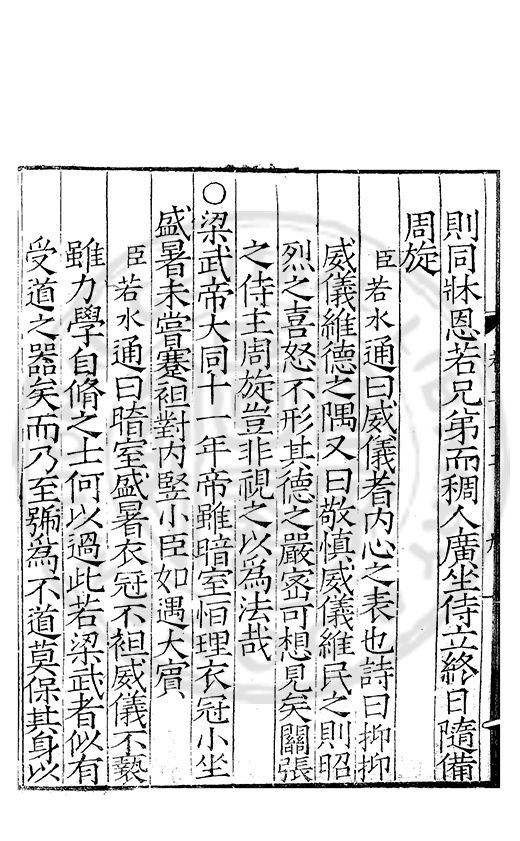 則同牀恩若兄弟而稠人廣坐侍立終日隨備
周旋
臣若水通曰威儀者內心之表也詩曰抑抑
威儀維德之隅又曰敬慎威儀維民之則昭
烈之喜怒不形其德之嚴密可想見矣關張
之侍主周旋豈非視之以為法哉
○梁武帝大同十一年帝雖暗室恒理衣冠小坐
盛暑未嘗蹇袒對內竪小臣如遇大賓
臣若水通曰暗室盛暑衣冠不袒威儀不褻
雖力學自脩之士何以過此若梁武者似有
受道之器矣而乃至號為不道莫保其身以